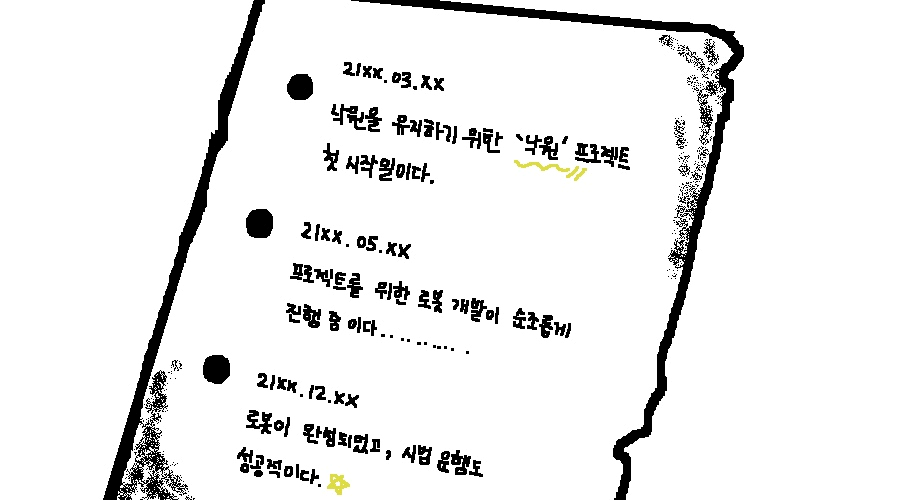 21xx.03.xx
낙원을 유지하기 위한 '낙원' 프로젝트
첫 시작일이다.
21xx.05.xx
프로젝트를 위한 로봇 개발이 순조롭게
진행 중 이다..........
21xx.12.xx
로봇이 완성되었고, 시범 운행도
성공적이다.☆